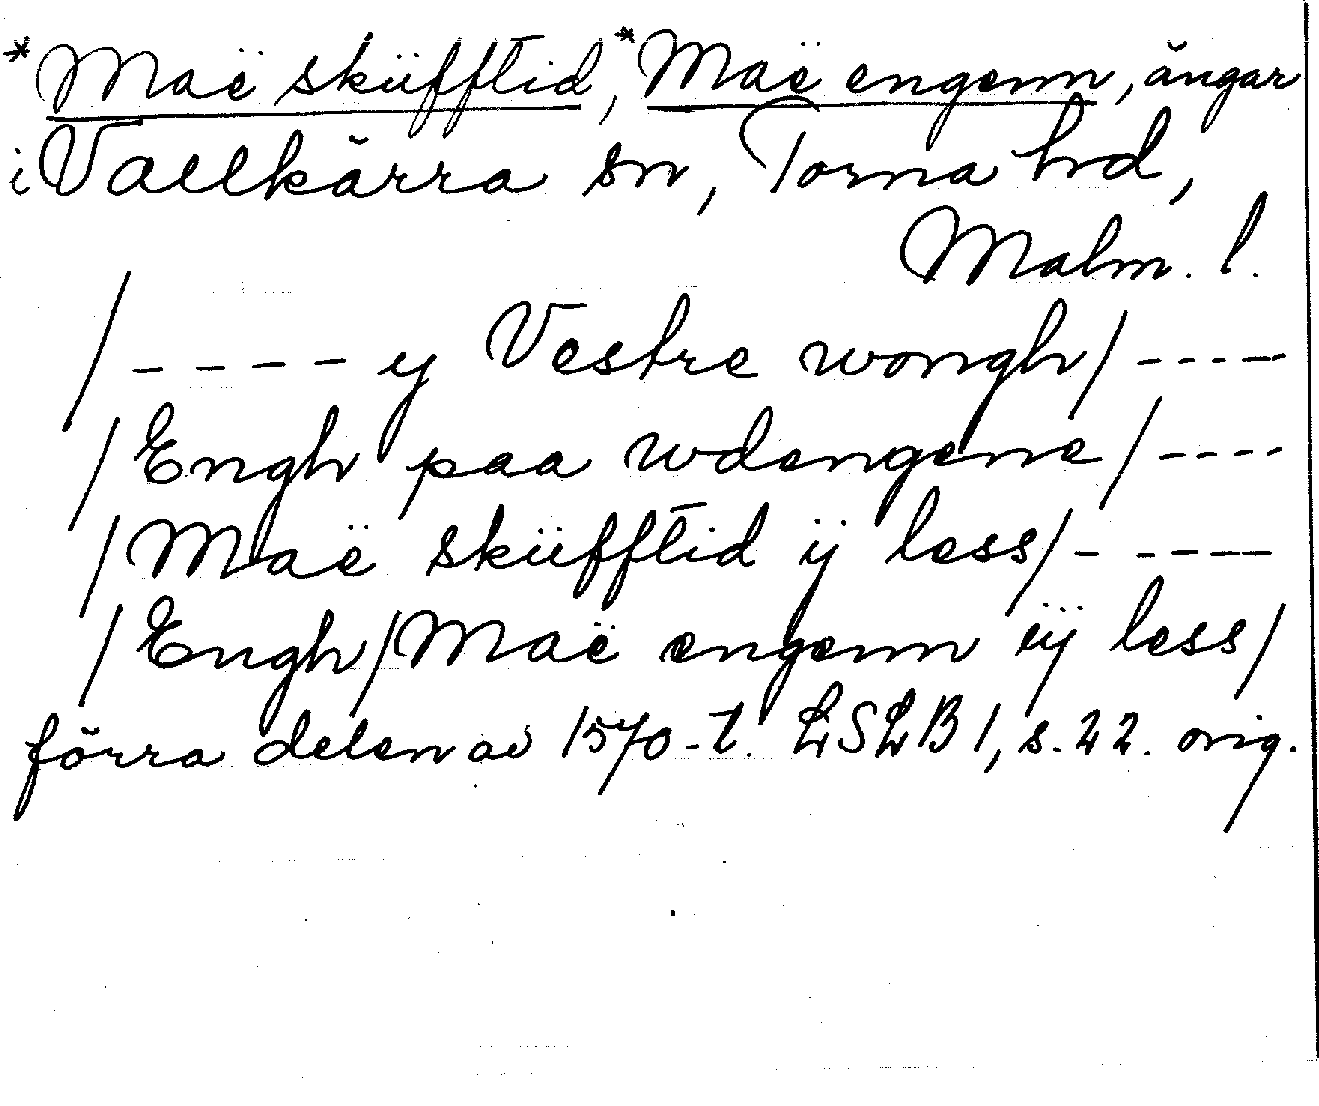 *Maë sküfftid, *Maë engenn, ängar
i Vallkärra sn, Torna hd,
Malm. l.
/ - - - - y Vestre wongh / - - - - -
/ Engh paa wdengene / - - - -
/ Maë sküfftid ÿ less / - - - - -
/ Engh / Maë engenn üÿ less /
förra delen av 1570-t. LSLB 1, s. 22. orig.